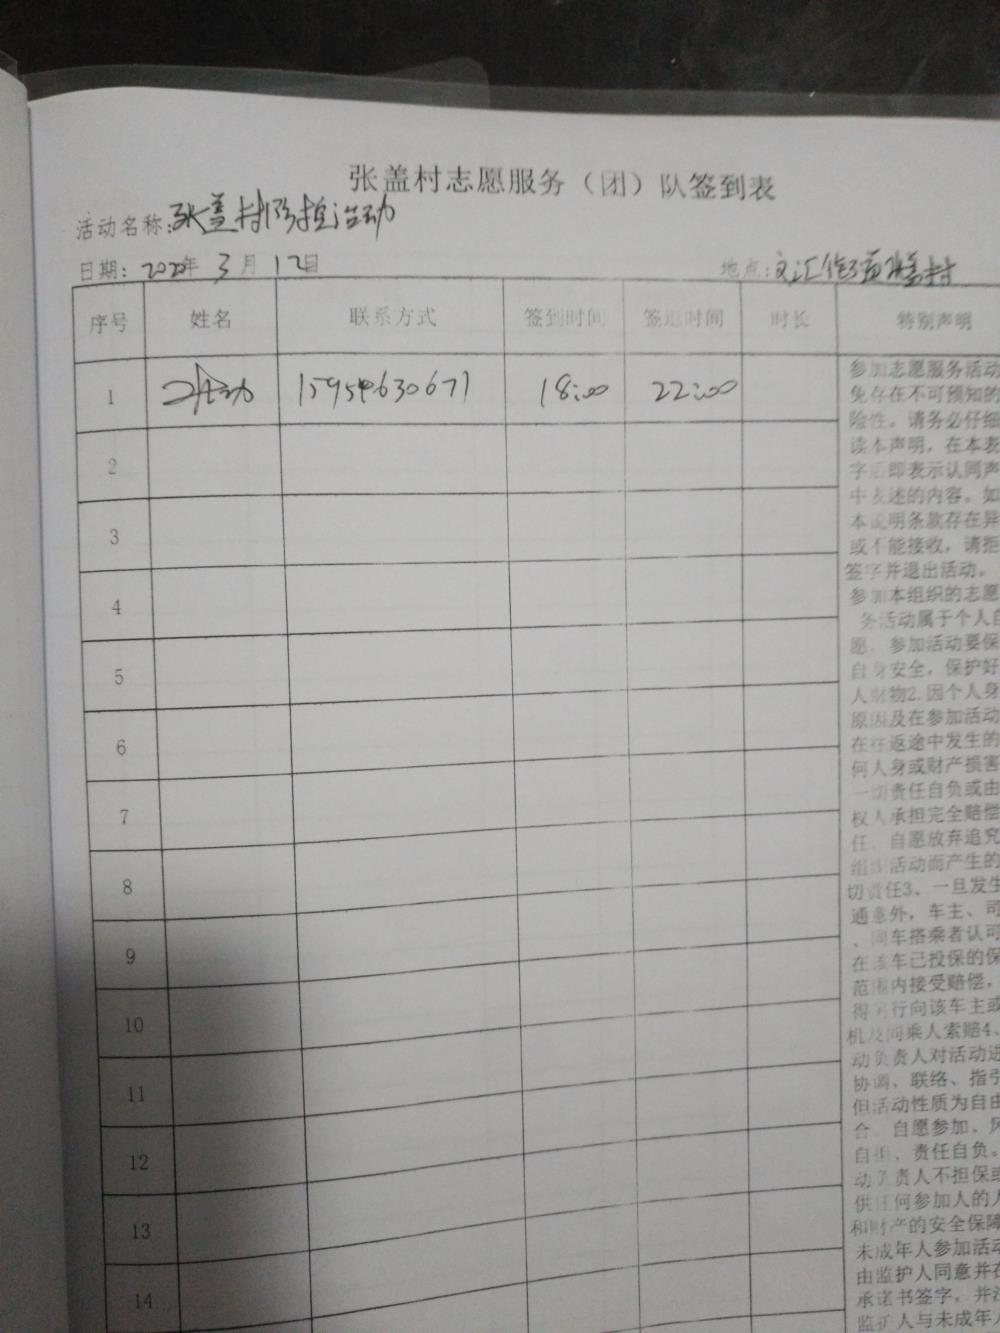 张盖村志愿服务（团）队签到表
活动名称:张盖村防控活动
日期: 2020年 3月 12日
地点:文汇街道张盖村
序号 姓名 联系方式 签到时间 签退时间 时长 特别声明
1 15954630671 18:00 22:00
2
3
4
5
6
7
8
9
10
11
12
13
14
参加志愿服务活动
免存在不可预知的
险性。请务必仔细
读本声明，在本表
字后即表示认同声
中表述的内容。如
本说明条款存在异
或不能接收，请拒
签字并退出活动。
参加本组织的志愿
务活动属于个人自
愿、参加活动要保
自身安全，保护好
人财物2.因个人身
原因及在参加活动
在往返途中发生的
何人身或财产损害
一切责任自负或由
权人承担完全赔偿
任、自愿放弃追究
组织活动而产生的
切责任3、一旦发生
通意外，车主、司
、同车搭乘者认可
在该车已投保的保
范围内接受赔偿，
得另行向该车主或
机及同乘人索赔4、
动负责人对活动进
协调、联络、指引
但活动性质为自由
合、自愿参加、风
自担、责任自负。
动负责人不担保或
供任何参加人的人
和财产的安全保障
未成年人参加活动
由监护人同意并在
承诺书签字，并注
监护人与未成年人